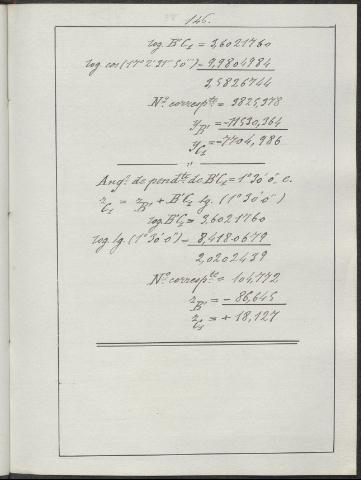 146.
log. B'C₁ = 3,6021760
log cos (17° 2' 31" 50''') = 9,9804984
3,5826744
N.º correspte = 3825,378
y_B' = -11530,364
y_C₁ = -7704,986
"
Angº de pendte de B'C₁ = 1° 30' 0", e.
z_C₁ = z_B' + B'C₁ tg. (1° 30' 0")
log B'C₁ = 3,6021760
log. tg. (1° 30' 0") = 8,4180679
2,0202439
N.º correspte = 104,772
z_B' = - 86,645
z_C₁ = + 18,127